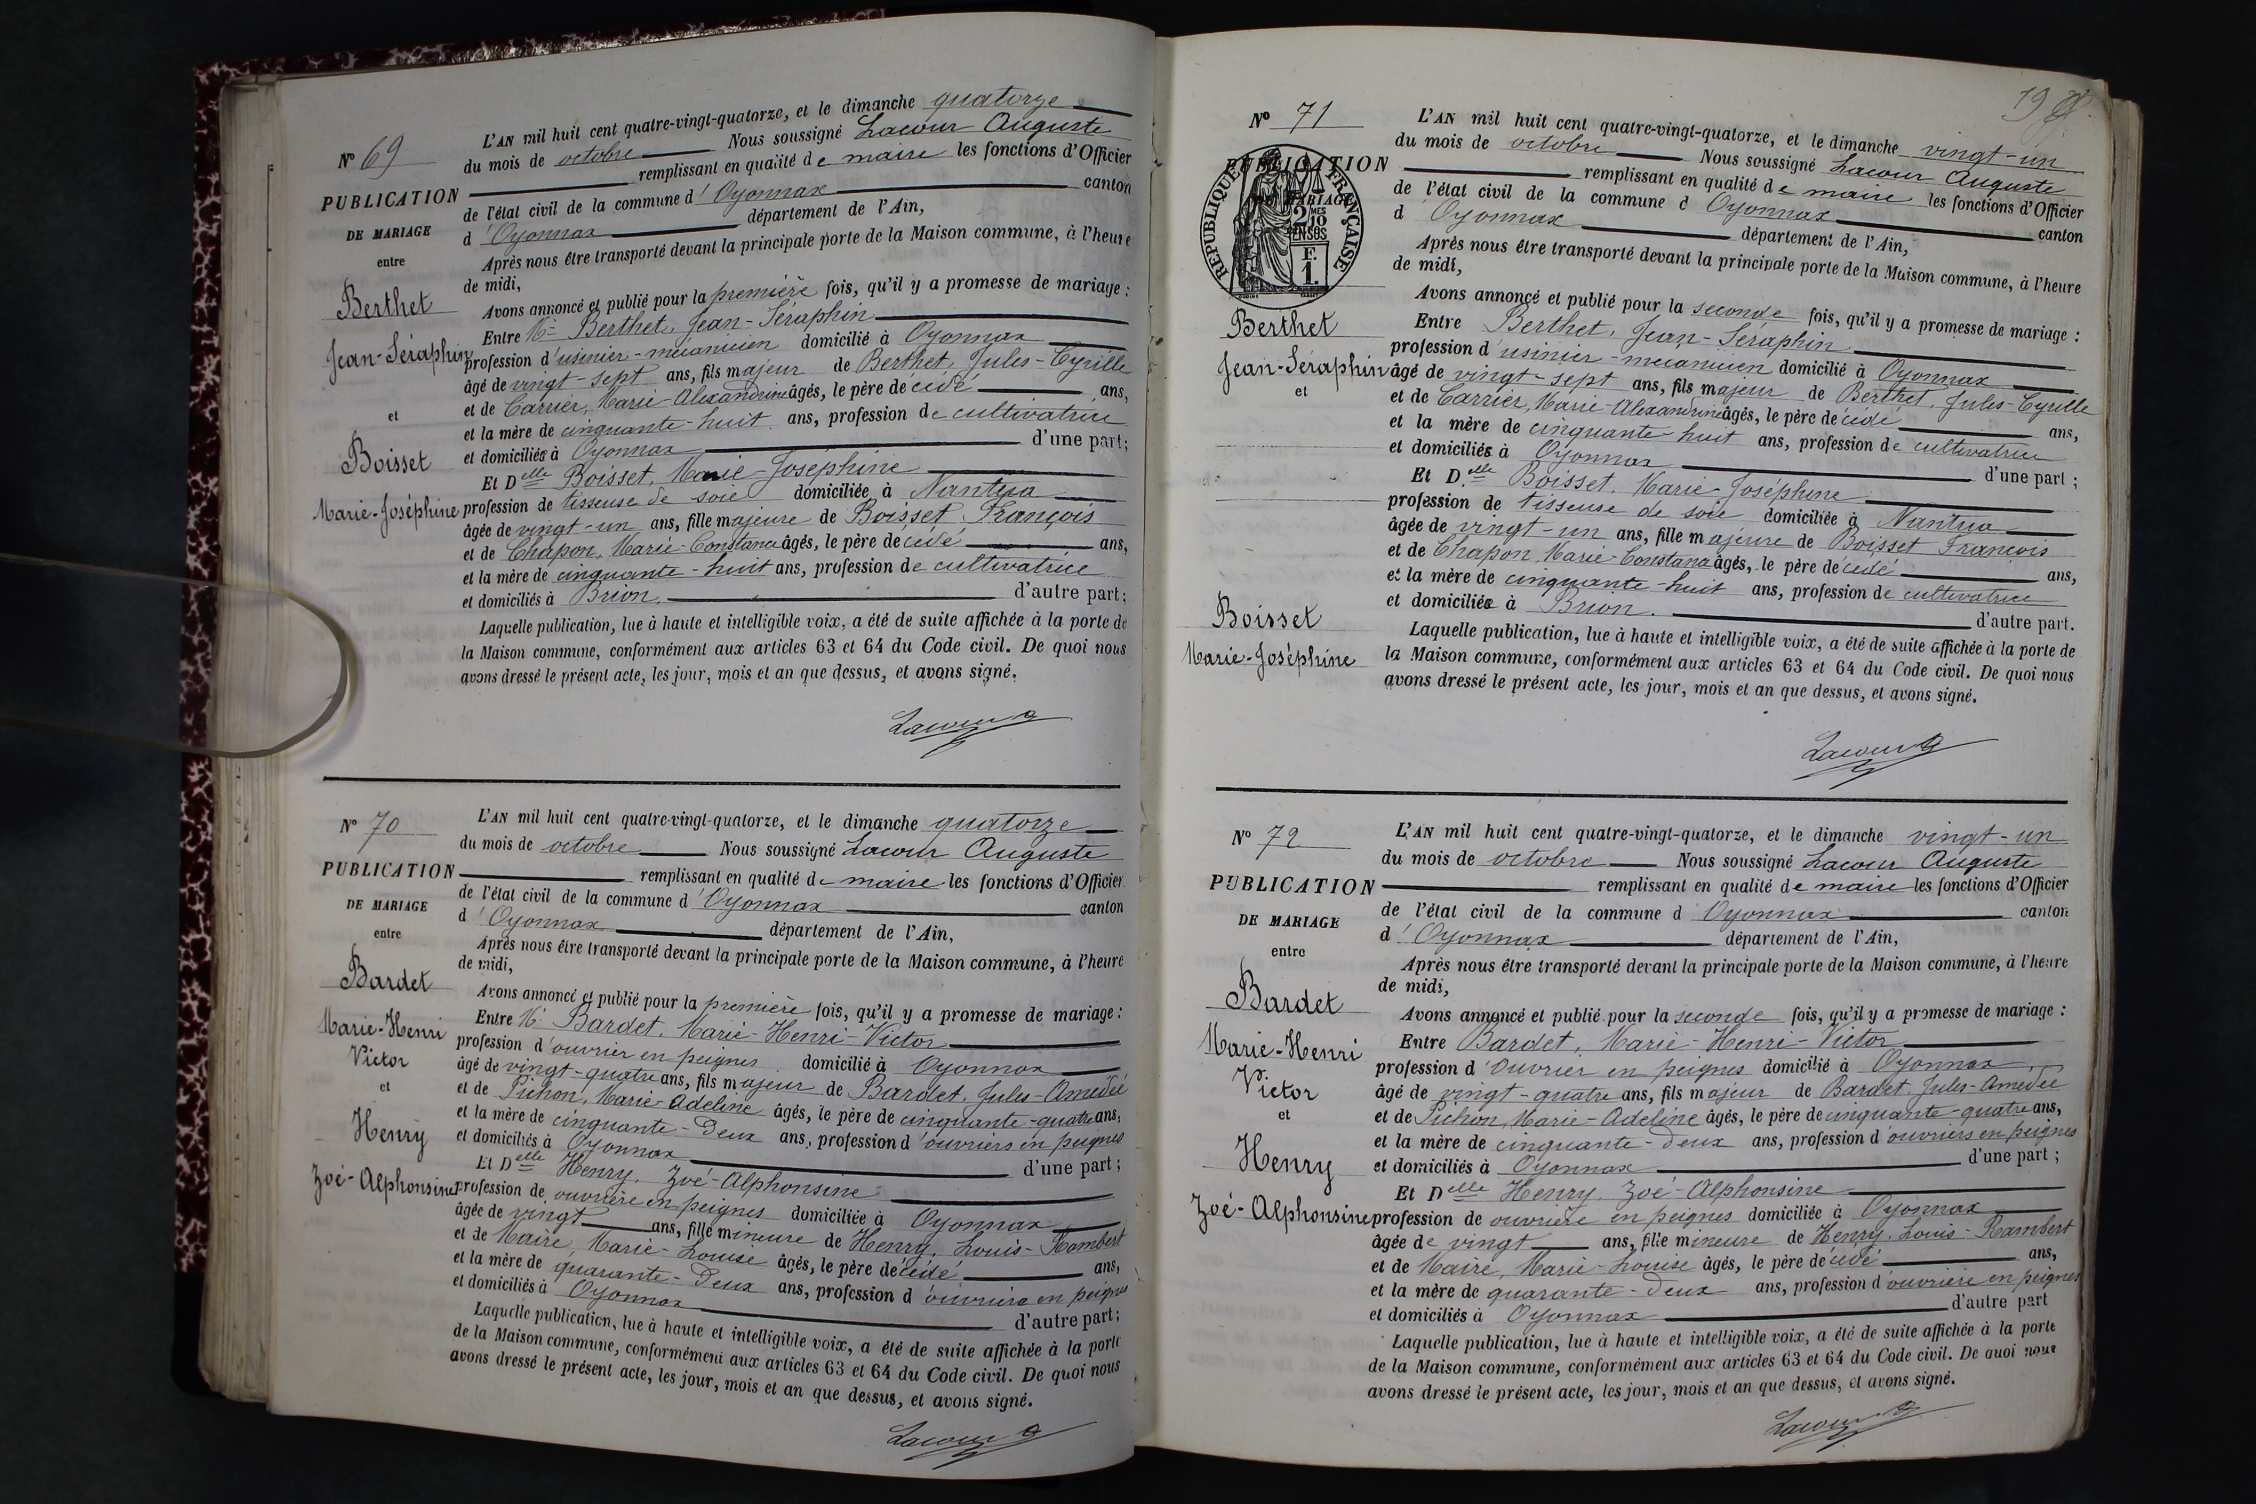 N° 69
PUBLICATION
DE MARIAGE
entre
Berthet
Jean-Séraphin
et
Boisset
Marie-Joséphine
L'AN mil huit cent quatre-vingt-quatorze, et le dimanche quatorze
du mois de octobre Nous soussigné Lacour Auguste
remplissant en qualité de maire les fonctions d'Officier
de l'état civil de la commune d'Oyonnax canton
d'Oyonnax département de l'Ain,
Après nous être transporté devant la principale porte de la Maison commune, à l'heure
de midi,
Avons annoncé et publié pour la première fois, qu'il y a promesse de mariage :
Entre Mr Berthet, Jean-Séraphin
profession d'usinier-mécanicien domicilié à Oyonnax
âgé de vingt-sept ans, fils majeur de Berthet, Jules-Cyrille
et de Carrier, Marie-Alexandrine âgés, le père de cédé ans,
et la mère de cinquante-huit ans, profession de cultivatrice
et domiciliés à Oyonnax d'une part;
Et Delle Boisset, Marie-Joséphine
profession de tisseuse de soie domiciliée à Nantua
âgée de vingt-un ans, fille majeure de Boisset François
et de Chapon, Marie-Constance âgés, le père de cédé ans,
et la mère de cinquante-huit ans, profession de cultivatrice
et domiciliés à Brion. d'autre part;
Laquelle publication, lue à haute et intelligible voix, a été de suite affichée à la porte de
la Maison commune, conformément aux articles 63 et 64 du Code civil. De quoi nous
avons dressé le présent acte, les jour, mois et an que dessus, et avons signé.
Lacour a
N° 70
PUBLICATION
DE MARIAGE
entre
Bardet
Marie-Henri
Victor
et
Henry
Zoé-Alphonsine
L'AN mil huit cent quatre-vingt-quatorze, et le dimanche quatorze
du mois de octobre Nous soussigné Lacour Auguste
remplissant en qualité de maire les fonctions d'Officier
de l'état civil de la commune d'Oyonnax canton
d'Oyonnax département de l'Ain,
Après nous être transporté devant la principale porte de la Maison commune, à l'heure
de midi,
Avons annoncé et publié pour la première fois, qu'il y a promesse de mariage :
Entre Mr Bardet, Marie-Henri-Victor
profession d'ouvrier en peignes domicilié à Oyonnax
âgé de vingt-quatre ans, fils majeur de Bardet, Jules-Amédée
et de Pichon, Marie-Adeline âgés, le père de cinquante-quatre ans,
et la mère de cinquante-deux ans, profession d'ouvriers en peignes
et domiciliés à Oyonnax d'une part;
Et Delle Henry, Zoé-Alphonsine
profession de ouvrière en peignes domiciliée à Oyonnax
âgée de vingt ans, fille mineure de Henry, Louis-Rambert
et de Maire, Marie-Louise âgés, le père décédé ans,
et la mère de quarante-deux ans, profession d'ouvrière en peignes
et domiciliés à Oyonnax d'autre part;
Laquelle publication, lue à haute et intelligible voix, a été de suite affichée à la porte
de la Maison commune, conformément aux articles 63 et 64 du Code civil. De quoi nous
avons dressé le présent acte, les jour, mois et an que dessus, et avons signé.
Lacour a
19
N° 71
PUBLICATION
DE MARIAGE
RÉPUBLIQUE FRANÇAISE
2 MES 10
EN SUS
F.
1.
Berthet
Jean-Séraphin
et
Boisset
Marie-Joséphine
L'AN mil huit cent quatre-vingt-quatorze, et le dimanche vingt-un
du mois de octobre Nous soussigné Lacour Auguste
remplissant en qualité de maire les fonctions d'Officier
de l'état civil de la commune d Oyonnax canton
d'Oyonnax département de l'Ain,
Après nous être transporté devant la principale porte de la Maison commune, à l'heure
de midi,
Avons annoncé et publié pour la seconde fois, qu'il y a promesse de mariage :
Entre Berthet, Jean-Séraphin
profession d'usinier-mécanicien domicilié à Oyonnax
âgé de vingt-sept ans, fils majeur de Berthet, Jules-Cyrille
et de Carrier, Marie-Alexandrine âgés, le père décédé ans,
et la mère de cinquante-huit ans, profession de cultivatrice
et domiciliés à Oyonnax d'une part;
Et Delle Boisset, Marie-Joséphine
profession de tisseuse de soie domiciliée à Nantua
âgée de vingt-un ans, fille majeure de Boisset François
et de Chapon, Marie-Constance âgés, le père décédé ans,
et la mère de cinquante-huit ans, profession de cultivatrice
et domiciliés à Brion. d'autre part.
Laquelle publication, lue à haute et intelligible voix, a été de suite affichée à la porte de
la Maison commune, conformément aux articles 63 et 64 du Code civil. De quoi nous
avons dressé le présent acte, les jour, mois et an que dessus, et avons signé.
Lacour a
N° 72
PUBLICATION
DE MARIAGE
entre
Bardet
Marie-Henri
Victor
et
Henry
Zoé-Alphonsine
L'AN mil huit cent quatre-vingt-quatorze, et le dimanche vingt-un
du mois de octobre Nous soussigné Lacour Auguste
remplissant en qualité de maire les fonctions d'Officier
de l'état civil de la commune d Oyonnax canton
d'Oyonnax département de l'Ain,
Après nous être transporté devant la principale porte de la Maison commune, à l'heure
de midi,
Avons annoncé et publié pour la seconde fois, qu'il y a promesse de mariage :
Entre Bardet, Marie-Henri-Victor
profession d'ouvrier en peignes domicilié à Oyonnax
âgé de vingt-quatre ans, fils majeur de Bardet, Jules-Amédée
et de Pichon, Marie-Adeline âgés, le père de cinquante-quatre ans,
et la mère de cinquante-deux ans, profession d'ouvriers en peignes
et domiciliés à Oyonnax d'une part;
Et Delle Henry, Zoé-Alphonsine
profession de ouvrière en peignes domiciliée à Oyonnax
âgée de vingt ans, fille mineure de Henry, Louis-Rambert
et de Maire, Marie-Louise âgés, le père décédé ans,
et la mère de quarante-deux ans, profession d'ouvrière en peignes
et domiciliés à Oyonnax d'autre part
Laquelle publication, lue à haute et intelligible voix, a été de suite affichée à la porte
de la Maison commune, conformément aux articles 63 et 64 du Code civil. De quoi nous
avons dressé le présent acte, les jour, mois et an que dessus, et avons signé.
Lacour a